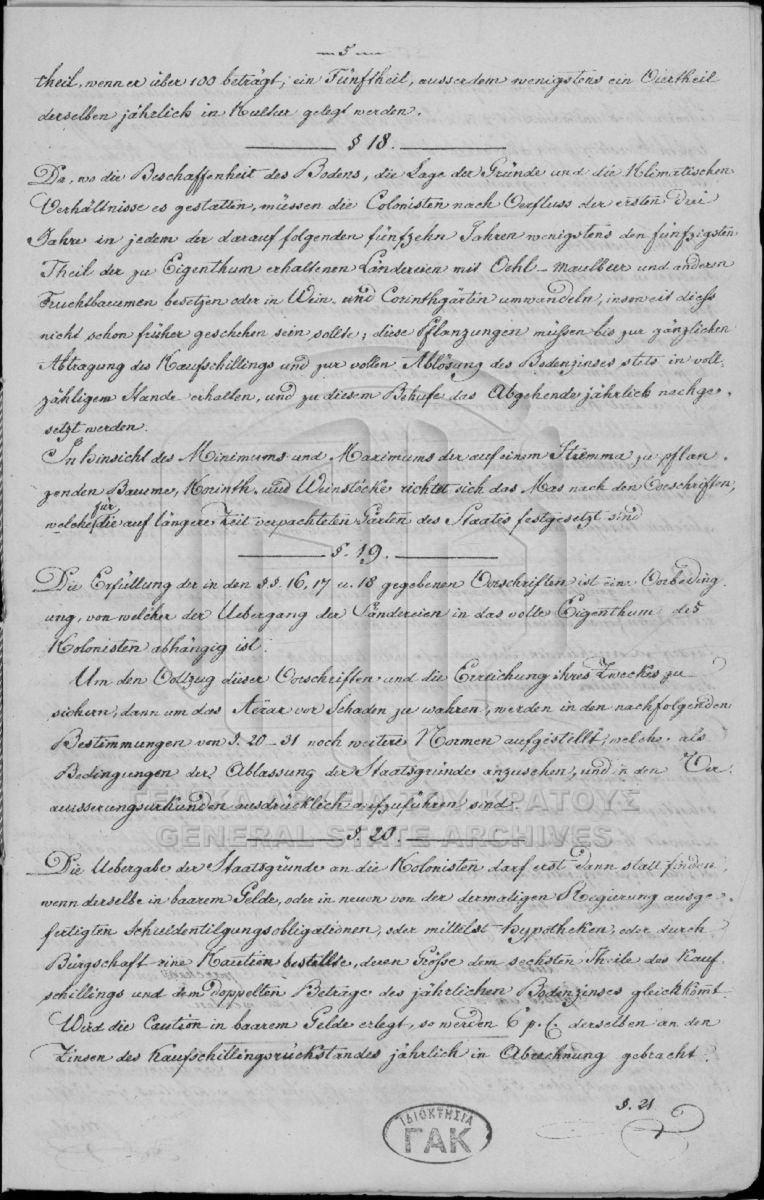 — 5 —
theil, wenn er über 100 beträgt, ein Fünftheil, ausserdem wenigstens ein Viertheil
derselben jährlich in Kultur gelegt werden.
§ 18.
Da, wo die Beschaffenheit des Bodens, die Lage der Gründe und die Klimatischen
Verhältnisse es gestatten, müssen die Colonisten nach Verfluss der ersten drei
Jahre in jedem der darauf folgenden fünfzehn Jahren wenigstens den fünfzigsten
Theil der zu Eigenthum erhaltenen Ländereien mit Oehl- Maulbeer und anderen
Fruchtbaeumen besetzen oder in Wein- und Corinthgärten umwandeln, insoweit diess
nicht schon früher geschehen sein sollte; diese Pflanzungen müssen bis zur gänzlichen
Abtragung des Kaufschillings und zur vollen Ablösung des Bodenzinses stets in voll-
zähligem Stande erhalten, und zu diesem Behufe das Abgehende jährlich nachge-
setzt werden.
In Hinsicht des Minimums und Maximums der auf einem Stremma zu pflan-
zenden Baume, Korinth- und Weinstöcke richtet sich das Mas nach den Vorschriften,
welche für die auf längere Zeit verpachteten Gärten des Staates festgesetzt sind
§. 19.
Die Erfüllung der in den §§. 16, 17 u. 18 gegebenen Vorschriften ist eine Vorbeding-
ung, von welcher der Uebergang der Ländereien in das volle Eigenthum des
Kolonisten abhängig ist.
Um den Vollzug dieser Vorschriften und die Erreichung ihres Zweckes zu
sichern, dann um das Aerar vor Schaden zu wahren, werden in den nachfolgenden
Bestimmungen von §. 20-31 noch weitere Normen aufgestellt, welche als
Bedingungen der Ablassung der Staatsgründe anzusehen, und in den Ver-
ausserungsurkunden ausdrücklich aufzuführen sind.
ΓΕΝΙΚΑ ΑΡΧΕΙΑ ΤΟΥ ΚΡΑΤΟΥΣ
GENERAL STATE ARCHIVES
§. 20
Die Uebergabe der Staatsgründe an die Kolonisten darf erst dann statt finden,
wenn derselbe in baarem Gelde, oder in neuen von der dermaligen Regierung ausge-
fertigten Schuldentilgungsobligationen, oder mittelst Hypotheken, oder durch
Bürgschaft eine Kaution bestellte, deren Grösse dem sechsten Theile des Kauf-
schillings und dem doppelten Betrage des jährlichen Bodenzinses gleichkömt.
Wird die Caution in baarem Gelde erlegt, so werden 6 p. C. derselben an den
Zinsen des Kaufschillingsrückstandes jährlich in Abrechnung gebracht.
§. 21
ΙΔΙΟΚΤΗΣΙΑ
ΓΑΚ